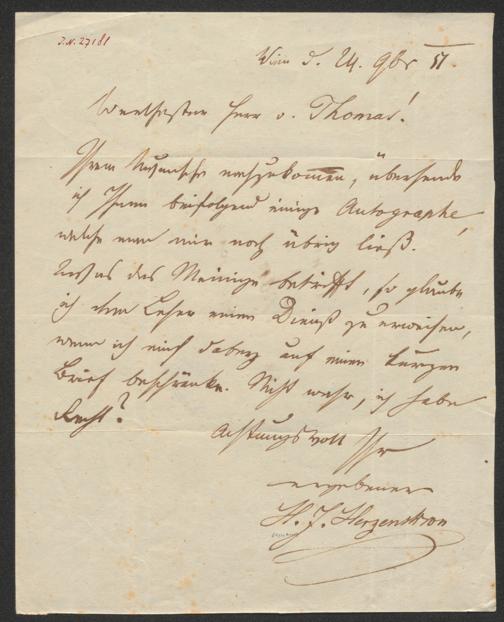 J.N. 27181
Wien d. 24. 9br 51.
Werthester Herr v. Thomas!
Ihrem Wunsche nachzukommen, übersende
ich Ihnen beifolgend einige Autographe,
welche man mir noch übrig ließ.
Was das Meinige betrifft, so glaube
ich dem Leser einen Dienst zu erweisen,
wenn ich mich dabey auf einen kurzen
Brief beschränke. Nicht wahr, ich habe
Recht?
Achtungsvoll Ihr
ergebener
H. J. Herzenskron